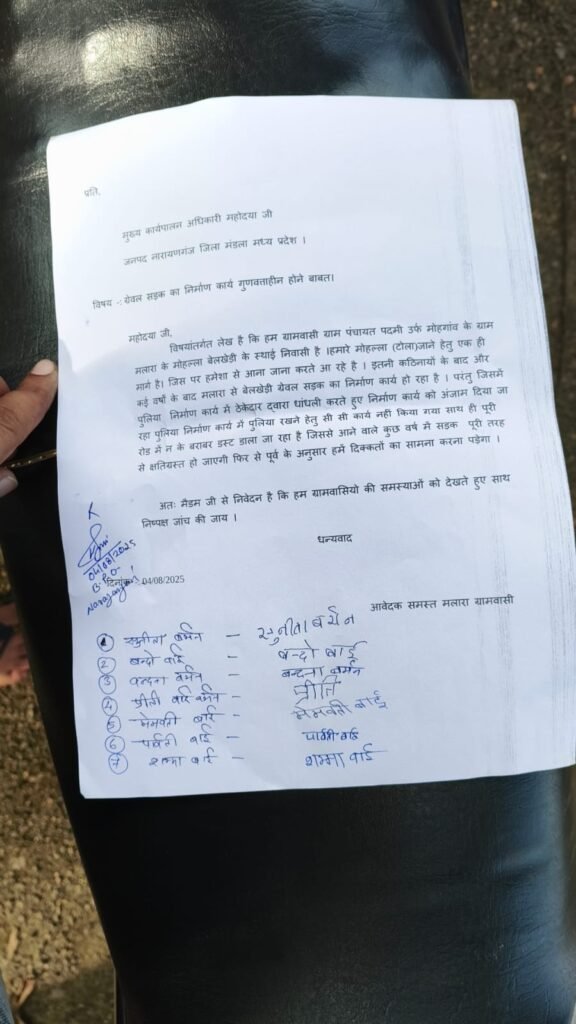 प्रति,
मुख्य कार्यपालन अधिकारी महोदया जी
जनपद नारायणगंज जिला मंडला मध्य प्रदेश ।
विषय -: ग्रेवल सड़क का निर्माण कार्य गुणवत्ताहीन होने बाबत।
महोदया जी,
विषयांतर्गत लेख है कि हम ग्रामवासी ग्राम पंचायत पदमी उर्फ मोहगांव के ग्राम
मलारा के मोहल्ला बेलखेड़ी के स्थाई निवासी है ।हमारे मोहल्ला (टोला)जाने हेतु एक ही
मार्ग है। जिस पर हमेशा से आना जाना करते आ रहे है । इतनी कठिनायों के बाद और
कई वर्षो के बाद मलारा से बेलखेड़ी ग्रेवल सड़क का निर्माण कार्य हो रहा है । परंतु जिसमें
पुलिया निर्माण कार्य में ठेकेदार द्वारा धांधली करते हुए निर्माण कार्य को अंजाम दिया जा
रहा पुलिया निर्माण कार्य में पुलिया रखने हेतु सी सी कार्य नही किया गया साथ ही पूरी
रोड में न के बराबर डस्ट डाला जा रहा है जिससे आने वाले कुछ वर्ष में सडक पूरी तरह
से क्षतिग्रस्त हो जाएगी फिर से पूर्व के अनुसार हमें दिक्कतों का सामना करना पड़ेगा ।
अतः मैडम जी से निवेदन है कि हम ग्रामवासियों की समस्याओं को देखते हुए साथ
निष्पक्ष जांच की जाय ।
धन्यवाद
04/08/2025
B.P.O.
दिनांक:- 04/08/2025
आवेदक समस्त मलारा ग्रामवासी
1 सुनीता बर्मन - सुनीता बर्मन
2 बन्दो बाई - बन्दो बाई
3 वन्दना बर्मन - बन्दना बर्मन
4 प्रीती बाई बर्मन - प्रीति
5 मेमवती बाई - मेमवती बाई
6 पार्वती बाई - पार्वती बाई
7 शम्मा बाई - शम्मा बाई